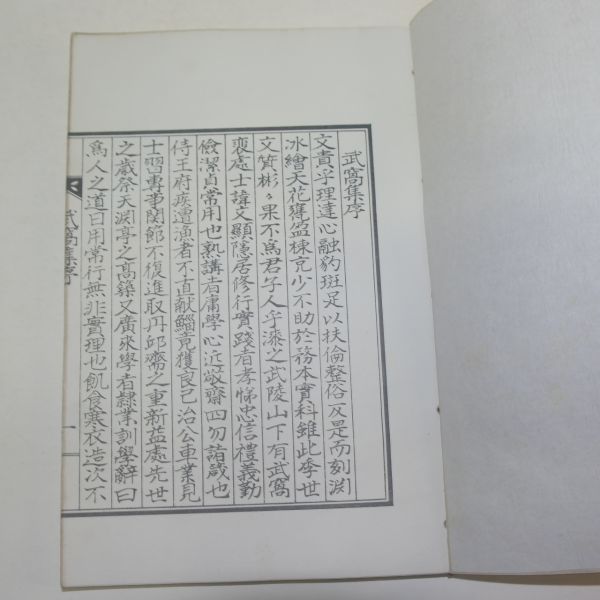 武窩集序
文貴乎理達心融豹斑足以扶倫整俗反是而刻淵
冰繪天花穰盈棟充少不助於務本實科雖此季世
文質彬〻果不爲君子人乎漆之武陵山下有武窩
裵處士諱文顯隱居修行實踐者孝悌忠信禮義勤
儉潔貞常用也熟講者庸學心近敬齋四勿諸箴也
侍王府疾遭漁者不直献鯔竟獲良已治公車業見
士習專事関節不復進取丹邱齋之重新益處先世
之歲祭天淵亭之高築又廣來學者隷業訓學辭曰
爲人之道日用常行無非實理也飢食寒衣造次不
武窩集序
一